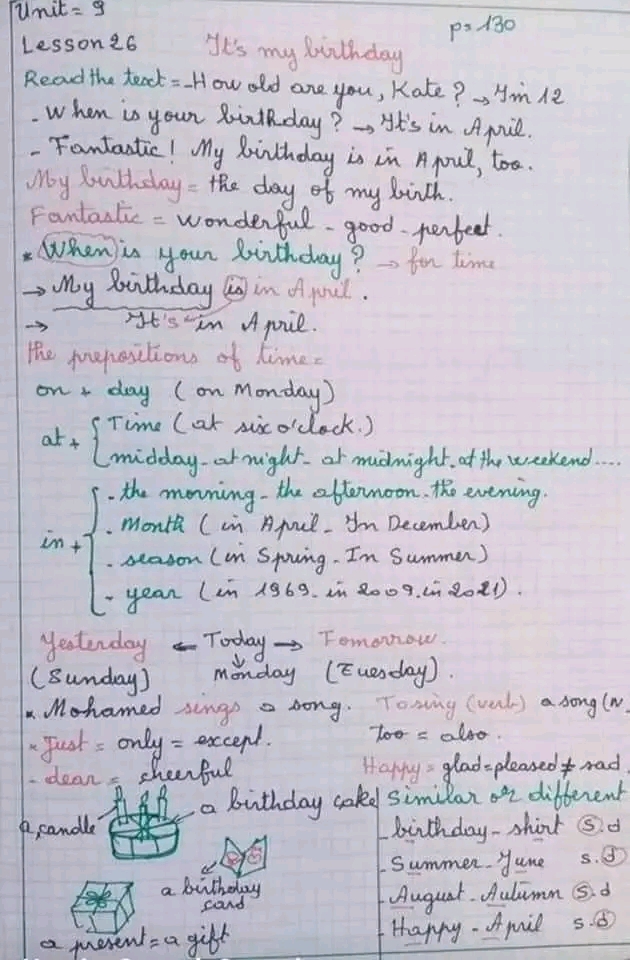 Unit = 9
p = 130
Lesson 26 It's my birthday
Read the text = - How old are you, Kate ? → I'm 12
- When is your birthday ? → It's in April.
- Fantastic ! My birthday is in April, too.
My birthday = the day of my birth.
Fantastic = wonderful - good - perfect.
* When is your birthday ? → for time
→ My birthday is in April .
→ It's in April.
the prepositions of time =
on + day ( on Monday)
at + { Time ( at six o'clock.)
midday - at night - at midnight. at the weekend....
in + { - the morning - the afternoon - the evening.
. Month ( in April - In December)
. season (in Spring - In Summer)
. year (in 1969 - in 2009 - in 2021) .
Yesterday ← Today → Tomorrow.
(Sunday) ↓ Monday (Tuesday) .
* Mohamed sings a song. To sing (verb) a song (N
* Just = only = except. Too = also .
- dear = cheerful Happy = glad = pleased ≠ sad.
a birthday cake
a candle
a birthday card
a present = a gift
Similar or different
- birthday - shirt s.d
- Summer - June s.d
- August - Autumn s.d
- Happy - April s.d